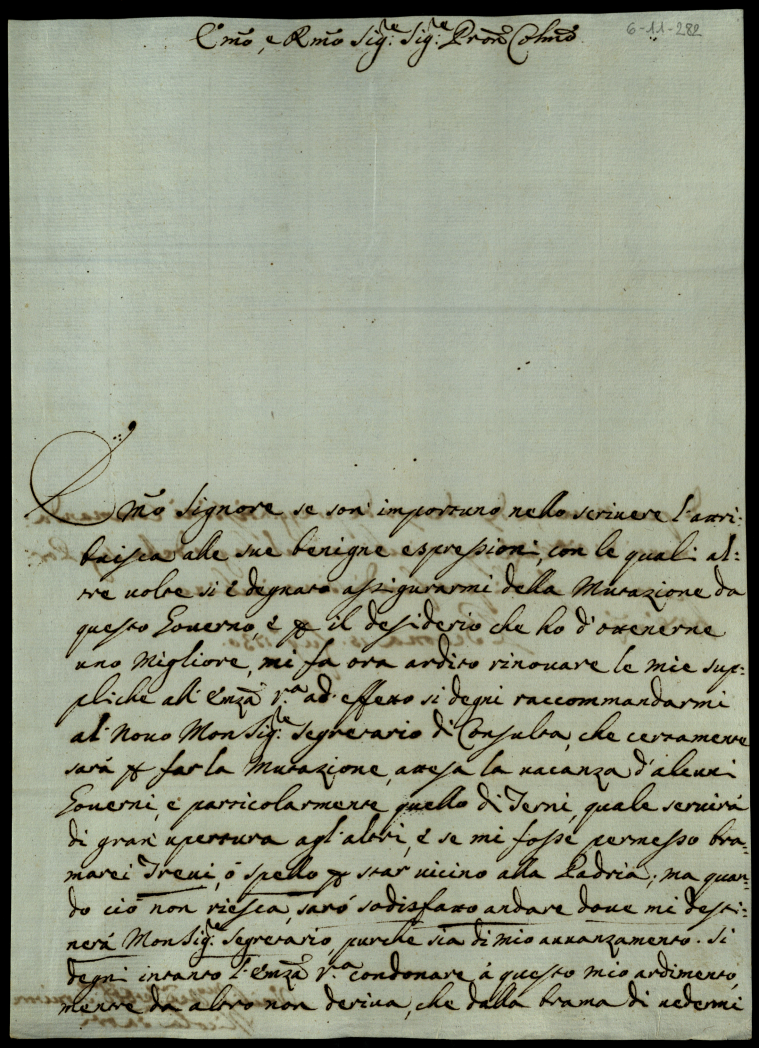 6-11-282
E'mo, e Rmo Sig.re Sig.re Pron Colmo
Emo Signore se son' importuno nello scrivere l'attri:
buisca alle sue benigne espressioni, con le quali al:
tre volte si è degnato assigurarmi della Mutazione da
questo Governo, è p il desiderio che hò d'ottenerne
uno Migliore, mi fa ora ardito rinovare le mie sup:
pliche all'Emza V.a ad effetto si degni raccommandarmi
al Novo MonSig.re Segretario di Consulta, che certamente
sarà p far la Mutazione, attesa la vacanza d'alcuni
Governi, e particolarmente quello di Terni, quale servirà
di gran' upertura agl'altri, è se mi fosse permesso bra:
marei Trevi, ò Spello p star vicino alla Padria; ma quan:
do ciò non riesca, sarò sodisfatto andare dove mi desti:
nerà MonSig.re Segretario, purche sia di mio avvanzamento. Si
degni intanto l'Emza V.a condonare à questo mio ardimento,
mentre da altro non deriva, che dalla brama di vedermi